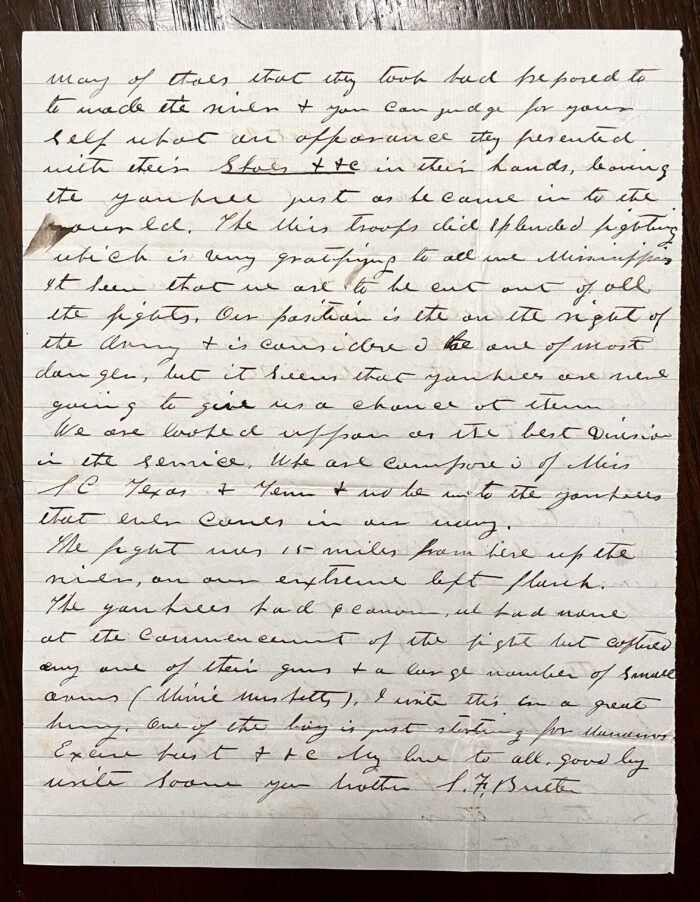 many of thoes that they took had prepored to
to wade the river & you can judge for your
self what an apparance they presented
with their Shoes & &c in their hands, leaving
the yankee just as he came in to the
wourld. The Miss troops did splended fighting
which is very gratifying to all we Mississippians
It seem that we are to be cut out of all
the fights. Our position is the on the right of
the Army & is considered the one of most
danger, but it seems that yankees are never
going to give us a chance at them
We are looked uppon as the best Division
in the service. We are compored of Miss
S C Texas & Tenn & wo be unto the yankees
that ever comes in our way.
The fight was 15 miles from here up the
river, on our extreme left flank.
The yankees had canon, we had none
at the commencement of the fight but captured
any one of their guns & a large number of small
arms (Minie musketts). I write this in a great
hurry. One of the boys is just starting for Manassas
Excuse hast & &c My love to all. good by
write soone your brother S. F.